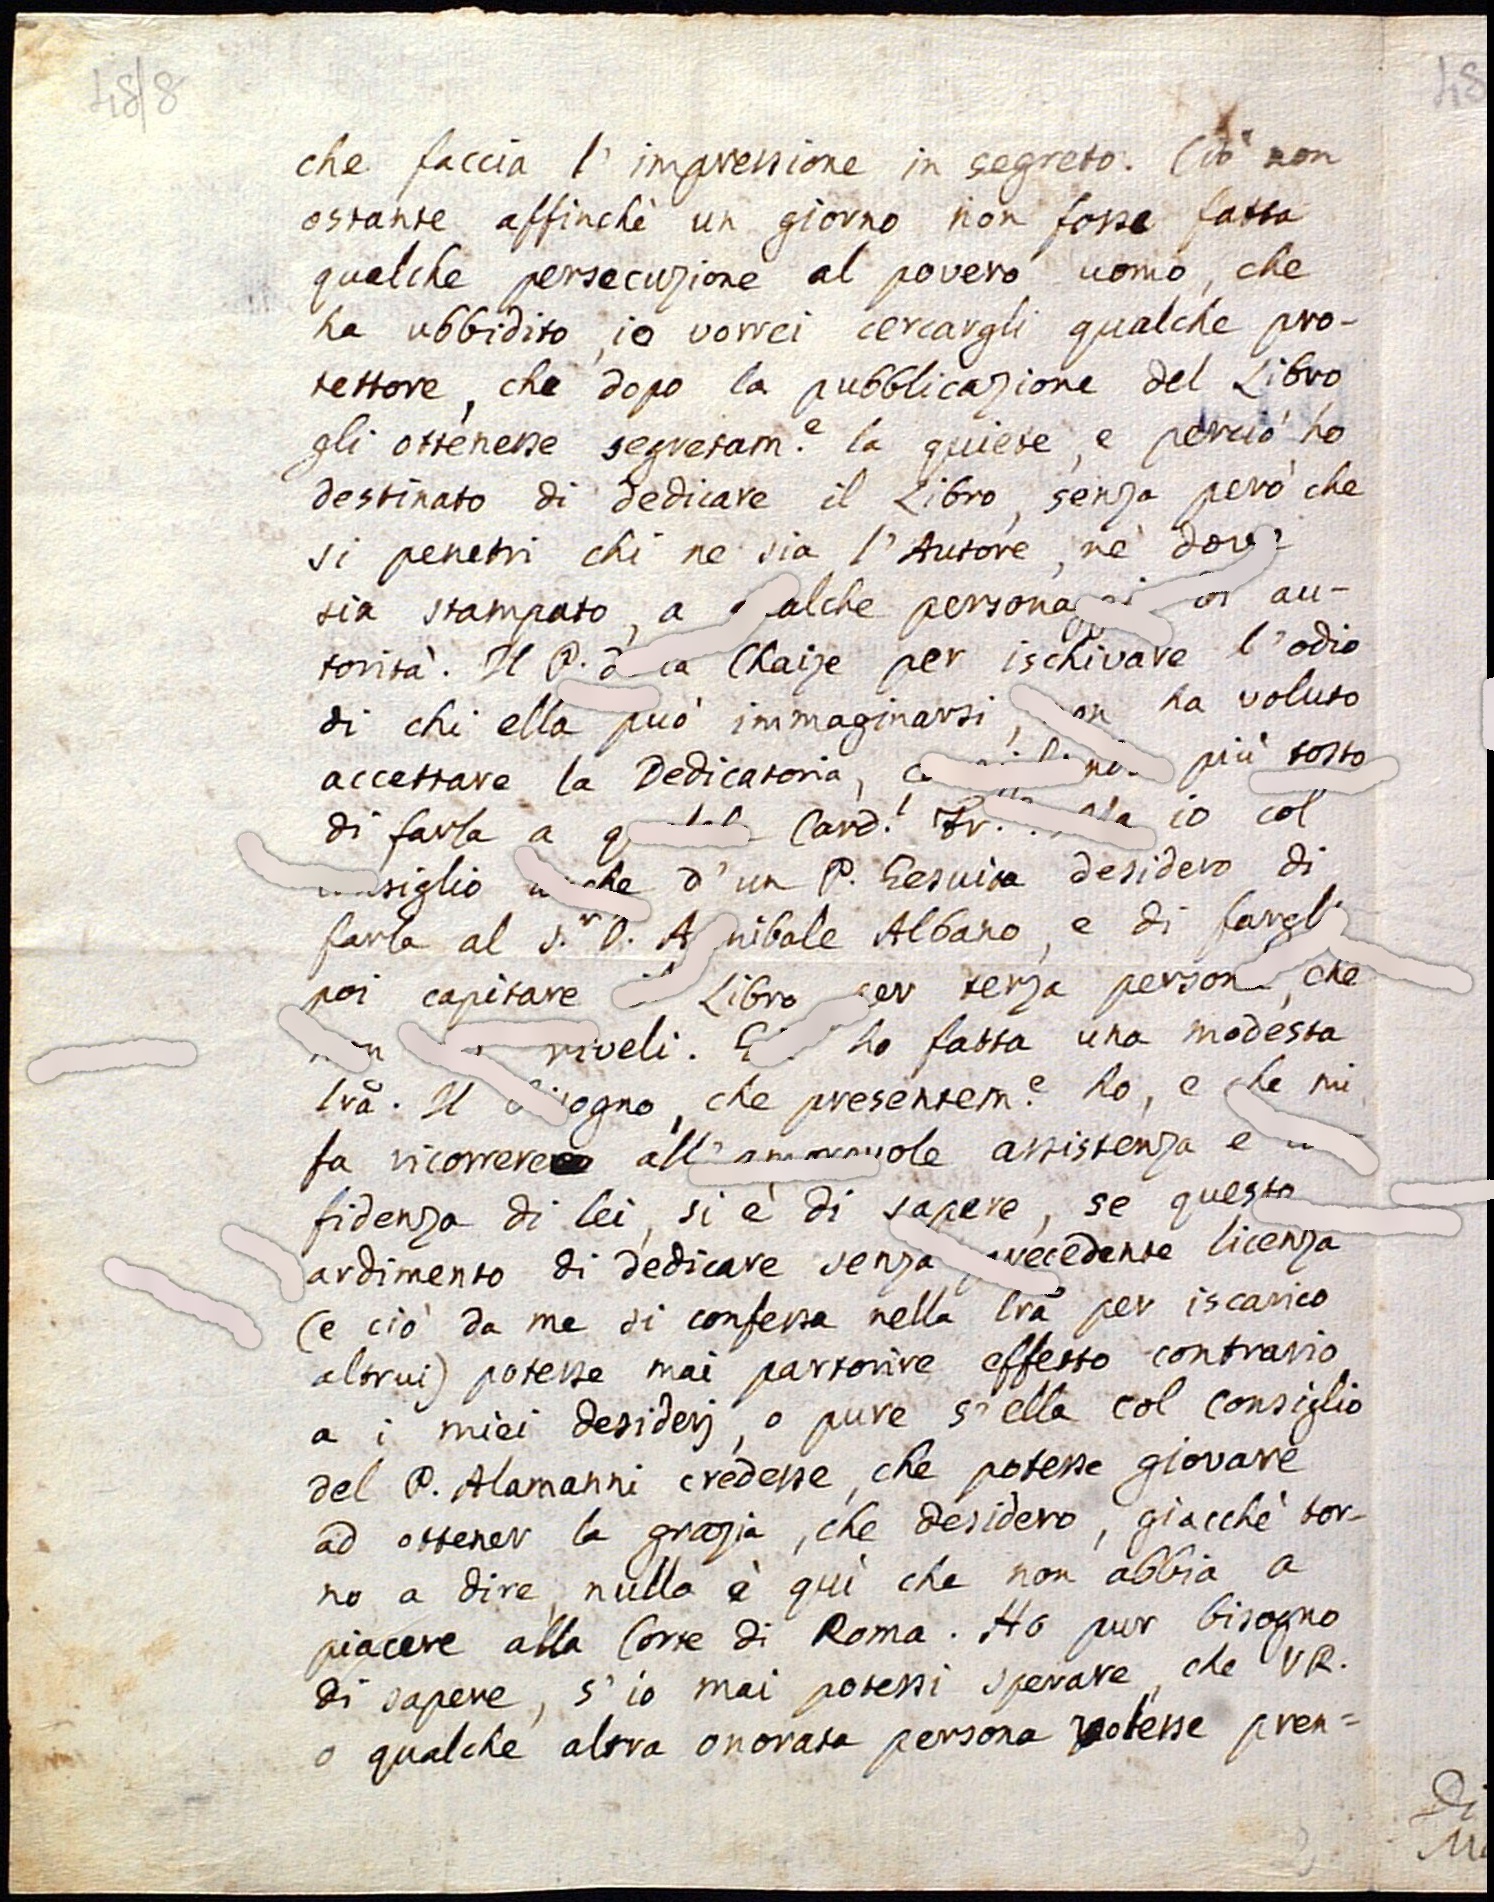 48/8
che faccia l' impressione in segreto. Ciò non
ostante affinchè un giorno non fosse fatta
qualche persecuzione al povero uomo, che
ha ubbidito, io vorrei cercargli qualche pro-
tettore, che dopo la pubblicazione del Libro
gli ottenesse segretam.e la quiete, e perciò ho
destinato di dedicare il Libro, senza però che
si penetri chi ne sia l'Autore, nè
sia stampato, a au-
torità. Il P. Chaize per ischivare l'odio
di chi ella può immaginarsi, ha voluto
accettare la Dedicatoria, più tosto
di farla a Card.l io col
d'un P. Gesuita desidero di
farla al S.r D. Albano, e di
poi capitare Libro terza che
ho fatta una modesta
lrã. Il che presentem.e ho, e che mi
fa ricorrere all' assistenza e
fidenza di lei, si è di sapere, se questo
ardimento di dedicare senza precedente licenza
(e ciò da me si confessa nella lrã per iscarico
altrui) potesse mai partorire effetto contrario
a i miei desiderj, o pure s'ella col consiglio
del P. Alamanni credesse, che potesse giovare
ad ottener la grazia, che desidero, giacchè tor-
no a dire, nulla è quì che non abbia a
piacere alla Corte di Roma. Ho pur bisogno
di sapere, s'io mai potessi sperare, che VR.
o qualche altra onorata persona potesse pren=